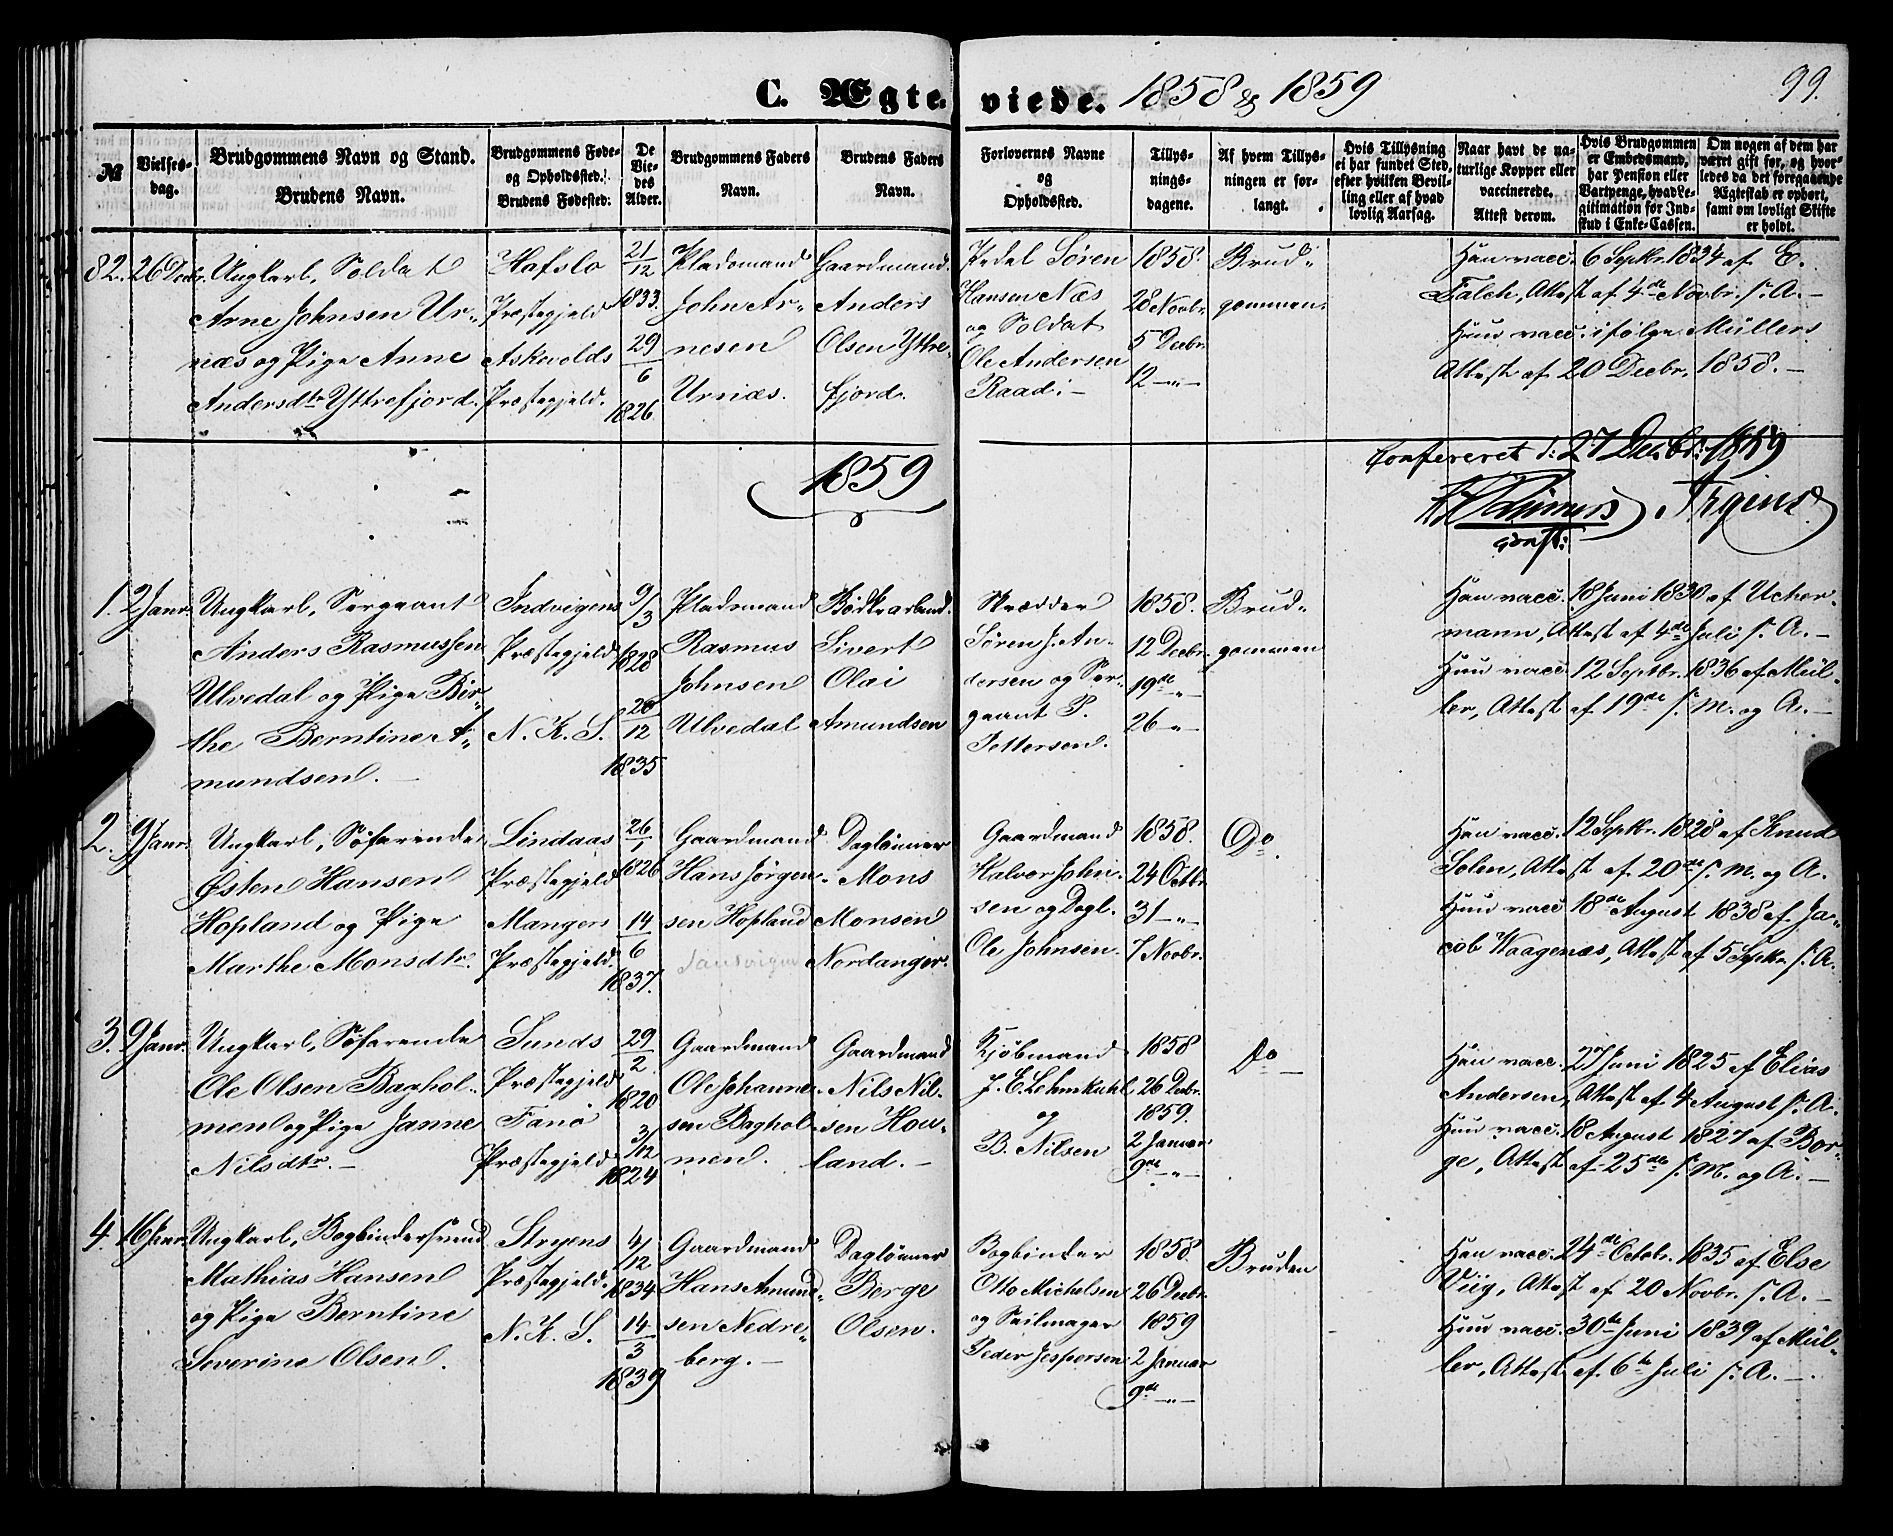 C. Ægteviede. 1858 & 1859
99.
№
Vielses-
dag.
Brudgommens Navn og Stand.
Brudens Navn.
Brudgommens Føde-
og Opholdssted.
Brudens Fødested.
De
Vie-
des
Alder.
Brudgommens Faders
Navn.
Brudens Faders
Navn.
Forlovernes Navne
og
Opholdssted.
Tillys-
nings-
dagene.
Af hvem Tillys-
ningen er for-
langt.
Hvis Tillysning
ei har fundet Sted,
efter hvilken Bevil-
ling eller af hvad
lovlig Aarsag.
Naar havt de na-
turlige Kopper eller
vaccinerede.
Attest derom.
Hvis Brudgommen
er Embedsmand,
har Pension eller
Vartpenge, hvad Le-
gitimation for Ind-
skud i Enke-Cassen.
Om nogen af dem har
været gift før, og hvor-
ledes da det foregaaende
Ægteskab er ophørt,
samt om lovligt Skifte
er holdt.
82. 26 Decbr.
Ungkarl, Soldat
Arne Johnsen Ur-
næs og Pige Anne
Andersdtr Yttrefjord.
Hafslo
Præstegjeld
Askevolds
Præstegjeld.
21/12
1833.
29/6
1826.
Pladsmand
John Ar-
nesen
Urnæs.
Gaardmand
Anders
Olsen Yttre-
fjord.
Pedel Søren
Hansen Næs
og Soldat
Ole Andersen
Raad.
1858.
28 Novbr.
5 Decbr.
12 —„—
Brud-
gommen.
Han vacc. 6 Septbr. 1834 af E.
Falch, Attest af 4de Novbr. s. A. —
Hun vacc. ifølge Müllers
Attest af 20 Decbr. 1858. —
Confereret d: 27 Decbr.
const:
1859
1. 2 Janr.
Ungkarl, Sergeant
Anders Rasmussen
Ulvedal og Pige Bir-
the Berntine A-
mundsen. —
Indvigens
Præstegjeld
N. K. S.
9/3
1828
/12
1835
Pladsmand
Rasmus
Johnsen
Ulvedal
Bødkersvend
Sivert
Olai
Amundsen
Skrædder
Søren J. An-
dersen og Ser-
geant P.
Pettersen.
1858.
12 Decbr.
19de „
26 „
Brud-
gommen
Han vacc. 18 Juni 1830 af Ucher-
mann, Attest af 4de Juli s. A. —
Hun vacc. 12 Septbr. 1836 af Mül-
ler, Attest af 19de s. M. og A. —
2. 9 Janr.
Ungkarl, Søfarende
Østen Hansen
Hopland og Pige
Marthe Monsdtr.
Lindaas
Præstegjeld
Mangers
Præstegjeld.
26/1
1826
14/6
1837.
Gaardmand
Hans Jørgen-
sen Hopland
Sandvigen
Daglønner
Mons
Monsen
Nordanger.
Gaardmand
Halvor John-
sen og Dagl.
Ole Johnsen.
1858.
24 Octbr.
31 —„—
7 Novbr.
Do.
Han vacc. 12 Septbr. 1828 af Knud
Solem, Attest af 20de s. M. og A.
Hun vacc. 18de August 1838 af Ja-
cob Waagenæs, Attest af 5 Septbr. s. A.
3. 9 Janr.
Ungkarl, Søfarende
Ole Olsen Baghol-
men og Pige Janne
Nilsdtr. —
Sunds
Præstegjeld.
Fanø
Præstegjeld
29/2
1820
3/12
1824
Gaardmand
Ole Johanne-
sen Baghol-
men.
Gaardmand
Nils Nil-
sen Hou-
land. —
Kjøbmand
J. E. Lehmkuhl
og
B. Nilsen
1858
26 Decbr.
1859.
2 Januar
9de —„—
Do —
Han vacc. 27 Juni 1825 af Elias
Andersen, Attest af 4 August s. A.
Hun vacc. 18 August 1827 af Bor-
ge, Attest af 25de s. M. og A. —
4. 16 Janr.
Ungkarl, Bogbindersvend
Mathias Hansen
og Pige Berntine
Severine Olsen.
Stryens
Præstegjeld.
N. K. S.
4/12
1834
14/3
1839
Gaardmand
Hans Amund-
sen Nedre-
berg. —
Daglønner
Berge
Olsen.
Bogbinder
Otto Michelsen
og Seilmager
Peder Jespersen
1858.
26 Decbr.
1859
2 Januar
9de —„—
Bruden
Han vacc. 24de Octobr. 1835 af Else
Viig, Attest af 20 Novbr. s. A. —
Hun vacc. 30te Juni 1839 af Mül-
ler, Attest af 6te Juli s. A. —